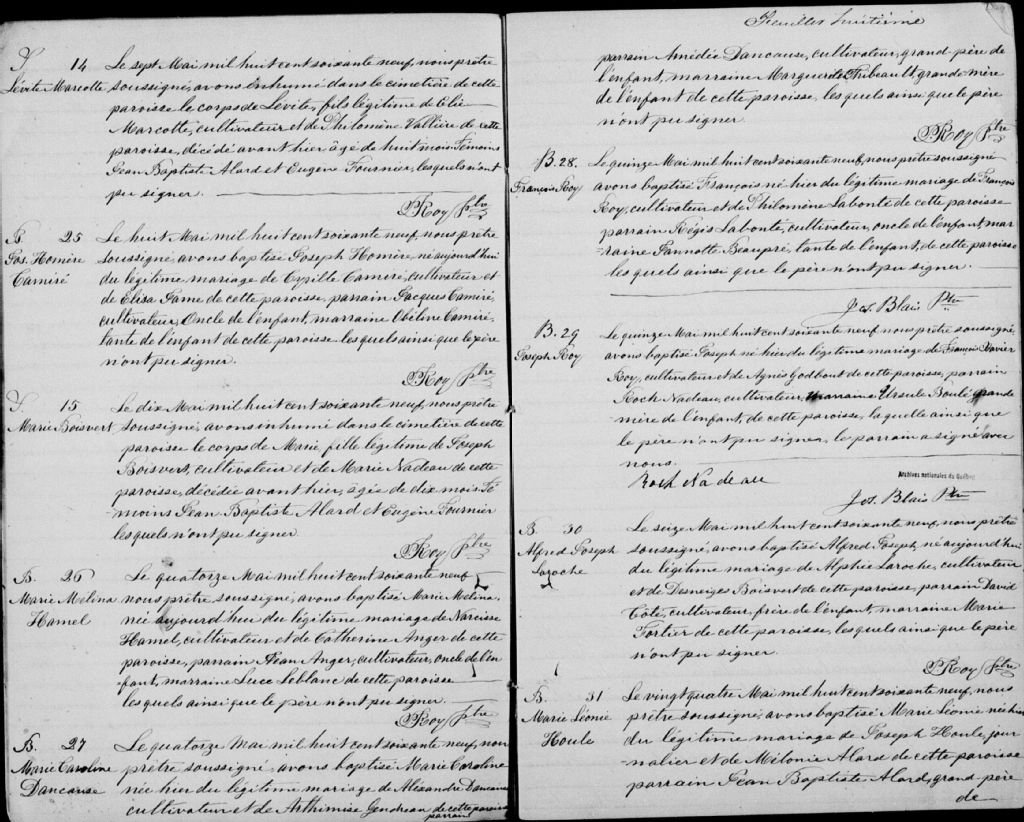 S. 14
Lévite Marcotte
Le sept Mai mil huit cent soixante neuf, nous prêtre
soussigné, avons inhumé dans le cimetière de cette
paroisse le corps de Lévite, fils légitime d'Elie
Marcotte, cultivateur et de Philomène Vallière de cette
paroisse, décédé avant hier âgé de huit mois Témoins
Jean Baptiste Alard et Eugène Fournier, lesquels n'ont
pu signer.
P Roy Ptre
B. 25
Jos. Homère
Camiré
Le huit Mai mil huit cent soixante neuf, nous prêtre
soussigné, avons baptisé Joseph Homère, né aujourd'hui
du légitime mariage de Cyrille Camiré, cultivateur et
de Elisa Jame de cette paroisse, parrain Jacques Camiré,
cultivateur, Oncle de l'enfant, marraine Obéline Camiré,
tante de l'enfant de cette paroisse lesquels ainsi que le père
n'ont pu signer.
P Roy Ptre
S. 15
Marie Boisvert
Le dix Mai mil huit cent soixante neuf, nous prêtre
soussigné, avons inhumé dans le cimetière de cette
paroisse le corps de Marie, fille légitime de Joseph
Boisvert, cultivateur et de Marie Nadeau de cette
paroisse, décédée avant hier, âgée de dix mois Té
moins Jean Baptiste Alard et Eugène Fournier
lesquels n'ont pu signer.
P Roy Ptre
B. 26
Marie Melina
Hamel
Le quatorze Mai mil huit cent soixante neuf
nous prêtre soussigné, avons baptisé Marie Melina,
née aujourd'hui du légitime mariage de Narcisse
Hamel, cultivateur et de Catherine Anger de cette
paroisse, parrain Jean Anger, cultivateur, oncle de l'en
fant, marraine Luce Leblanc de cette paroisse
lesquels ainsi que le père n'ont pu signer.
P Roy Ptre
B. 27
Marie Caroline
Dancause
Le quatorze Mai mil huit cent soixante neuf, nous
prêtre soussigné, avons baptisé Marie Caroline
née hier du légitime mariage de Aléxandre Dancause
cultivateur et de Arthimise Gendreau de cette paroisse
parrain
Feuillet huitième
parrain Amédée Dancause, cultivateur, grand-père de
l'enfant, marraine Marguerite Thibeault grande mère
de l'enfant de cette paroisse, lesquels ainsi que le père
n'ont pu signer.
P Roy Ptre
B. 28.
François Roy
Le quinze Mai mil huit cent soixante neuf, nous prêtre soussigné
avons baptisé François né hier du légitime mariage de François
Roy, cultivateur et de Philomène Labonté de cette paroisse
parrain Régis Labonté, cultivateur, oncle de l'enfant, mar
raine Nannette Beaupré, tante de l'enfant, de cette paroisse
lesquels ainsi que le père n'ont pu signer.
Jos. Blais Ptre
B. 29
Joseph Roy
Le quinze Mai mil huit cent soixante neuf nous prêtre soussigné,
avons baptisé Joseph né hier du légitime mariage de François Xavier
Roy, cultivateur et de Agnès Godbout de cette paroisse, parrain
Roch Nadeau, cultivateur, marraine Ursule Boulé, grande
mère de l'enfant, de cette paroisse, laquelle ainsi que
le père n'ont pu signer, le parrain a signé avec
nous.
Roch Nadeau
Archives nationales du Québec
Jos. Blais Ptre
B. 30
Alfred Joseph
Laroche
Le seize Mai mil huit cent soixante neuf, nous prêtre
soussigné, avons baptisé Alfred Joseph, né aujourd'hui
du légitime mariage de Alphée Laroche, cultivateur
et de Desneiges Boisvert de cette paroisse, parrain David
Côté, cultivateur, frère de l'enfant, marraine Marie
Fortier de cette paroisse, lesquels ainsi que le père
n'ont pu signer.
P Roy Ptre
B. 31
Marie Léonie
Houle
Le vingt quatre Mai mil huit cent soixante neuf, nous
prêtre soussigné, avons baptisé Marie Léonie née hier
du légitime mariage de Joseph Houle, jour
nalier et de Mélonie Alard de cette paroisse
parrain Jean Baptiste Alard, grand père
de